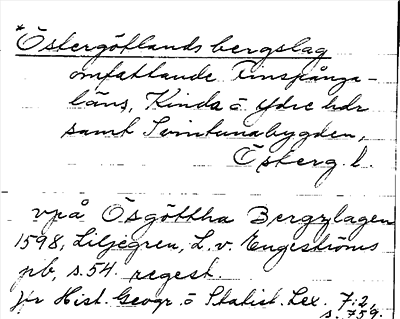 *Östergötlands bergslag
omfattande Finspånga-
läns, Kinda o Ydre hdr
samt Svintunabygden,
Österg. l.
vpå Ösgöttha Bergzlagen
1598, Liljegren, L. v. Engeströms
pb, s. 54. regest.
jfr Hist. Geogr. o Statist. Lex. 7:2,
s. 759.